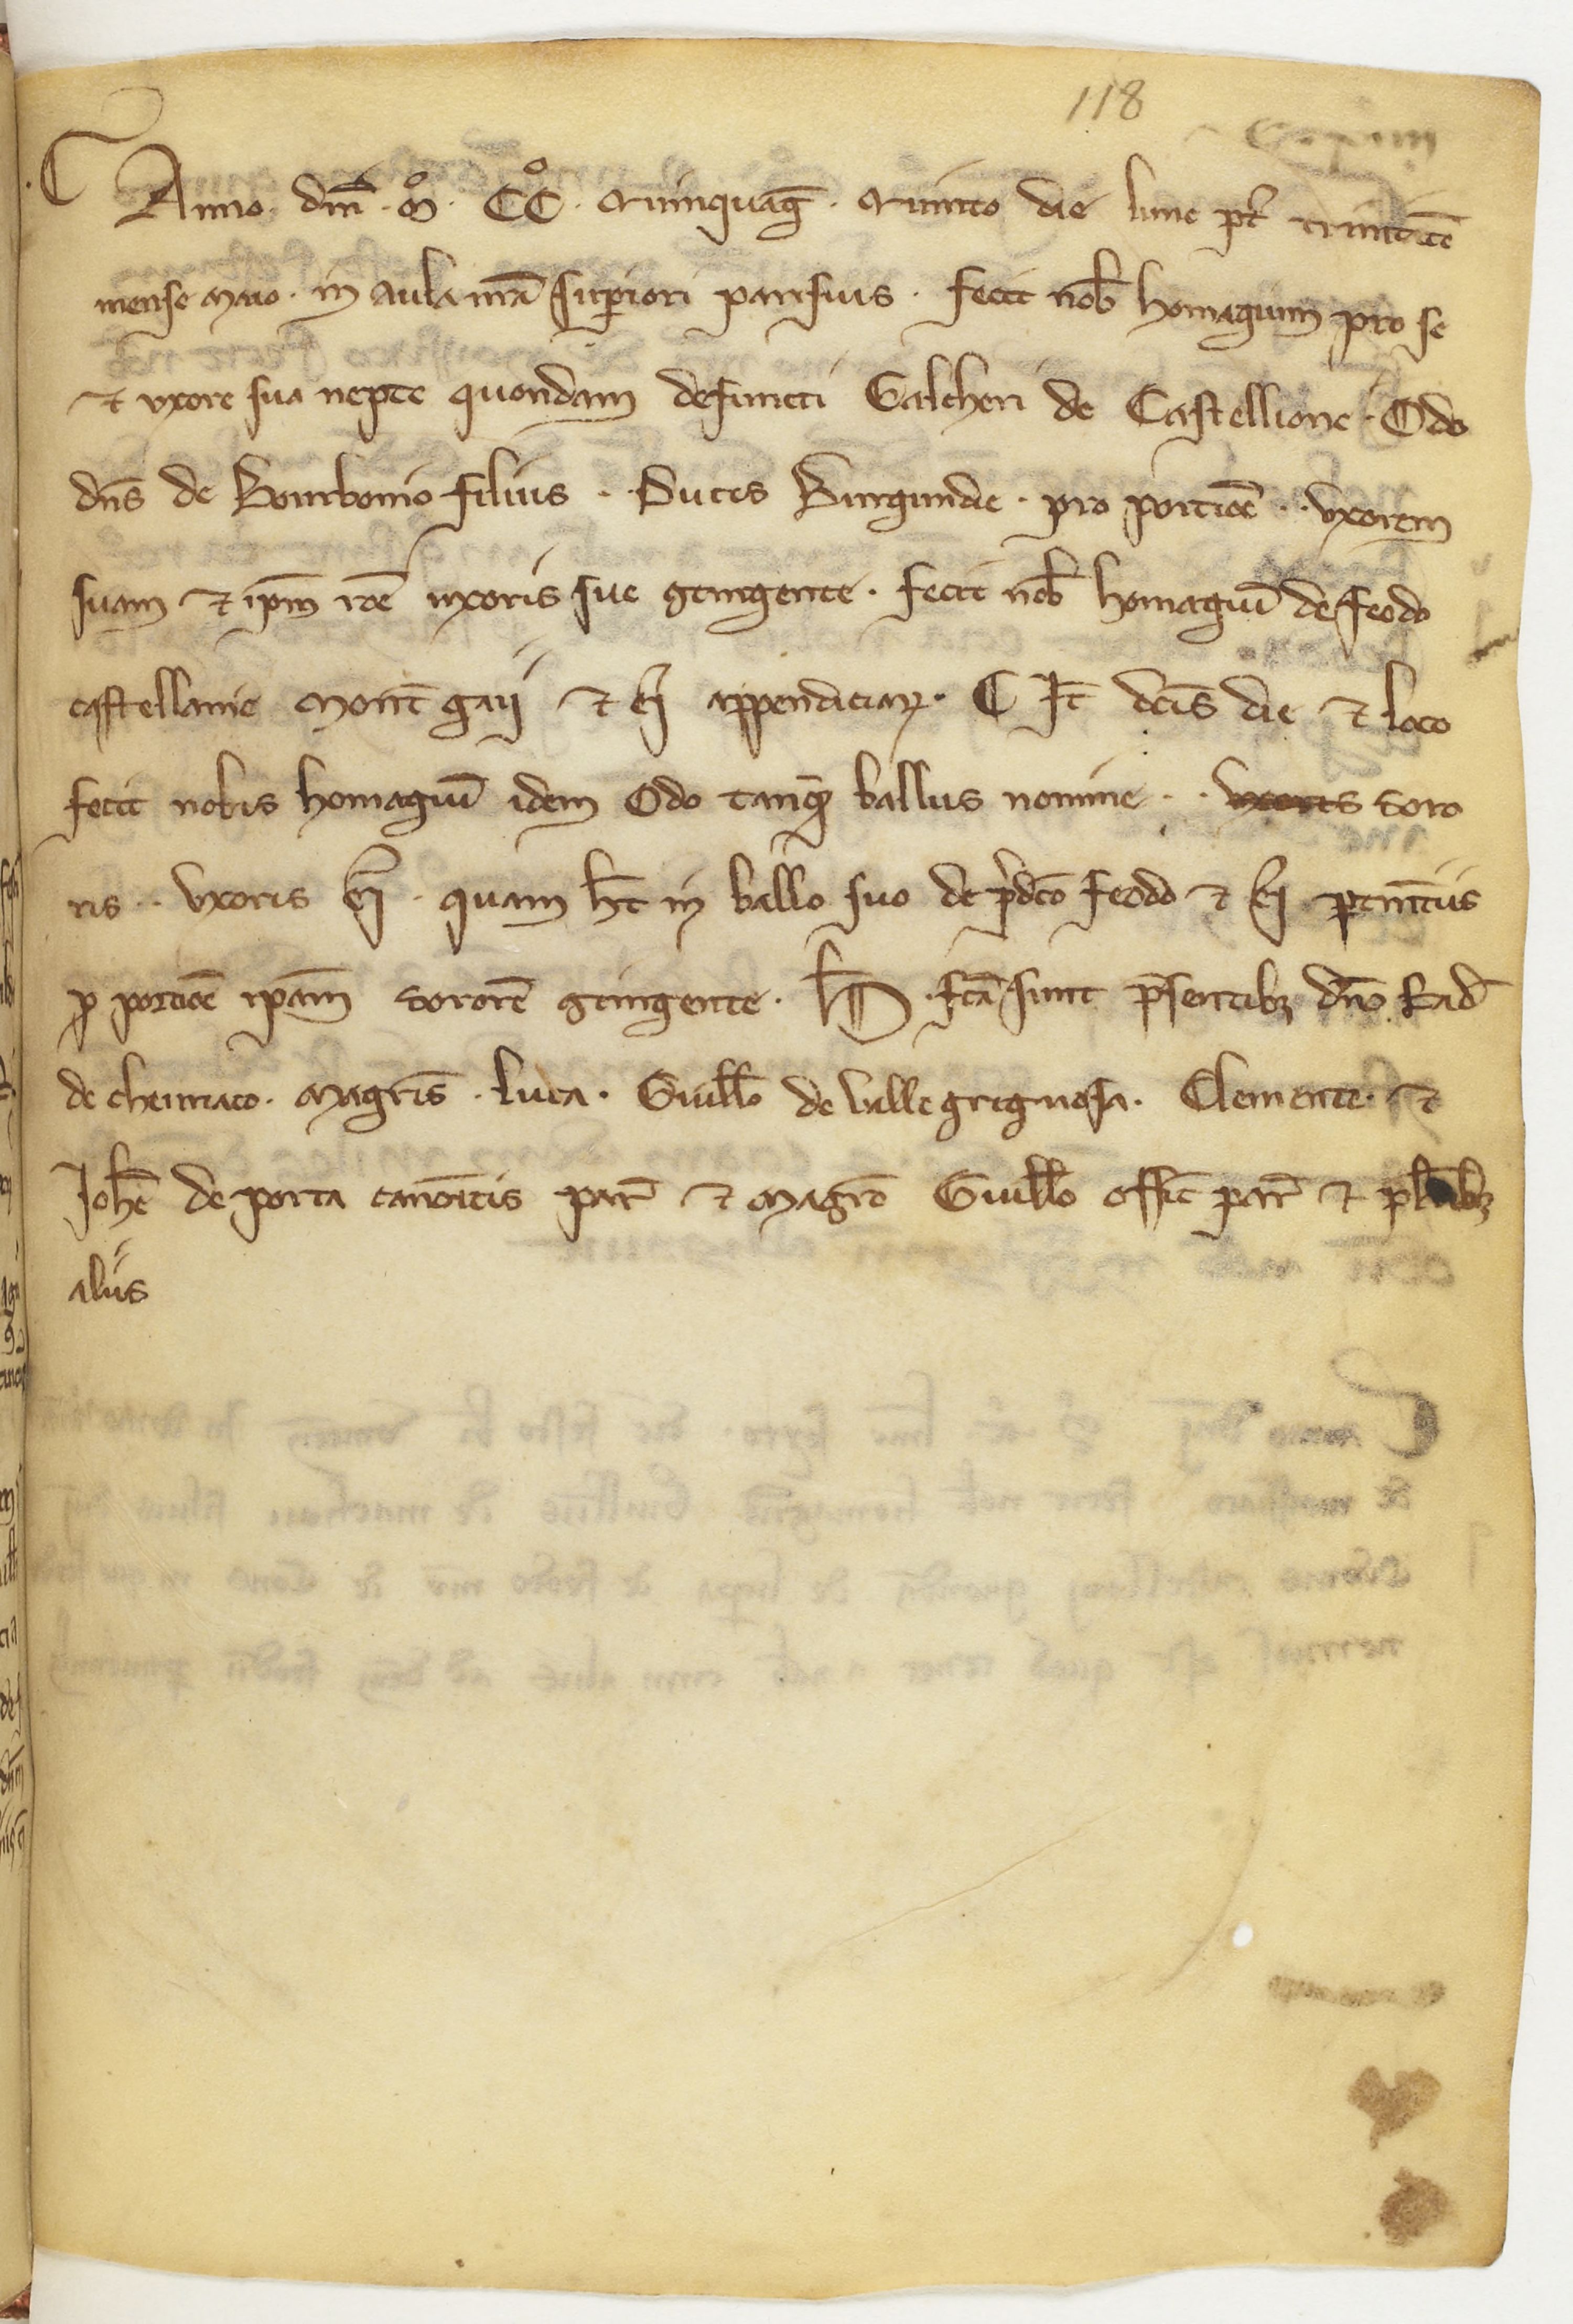 118
Anno dnī · Mº · CCº · Quinquaḡ · Quinto die lune pt̄ trinitatē
mense Maio · in aula nr̄a supiori parisius · fecit nob̄ homagium pro se
et uxore sua nepte quondam defuncti Galcheri de Castellione · Odo
dn̄s de Bourbonio filius · · Ducis Burgundie · pro portiōē · · uxorem
suam et ip̄m rōē uxoris sue ꝯtingente · fecit nob̄ homagiū de feodo
castellanie Mont̄ gaii et eī appendiciaꝝ · ¶ It̄ dc̄is die et loco
fecit nobis homagiū idem Odo tanqͣ ballus nomine · · uxoris soro
ris · · uxoris eī · quam h̄t in ballo suo de p̄dc̄o feodo et eī ꝑtinētiis
ꝓ portiōē ip̄am sororē ꝯtingente · H · fc̄a sunt p̄sentibꝫ dn̄o Rad̄
de cheuriaco · Magr̄is · luca · Guill̄o de Valle grignosa · Clemente · et
Joh̄e de porta canoīcis par̄ et Magr̄o Guill̄o offic̄ par̄ et pl̄ibꝫ
aliis